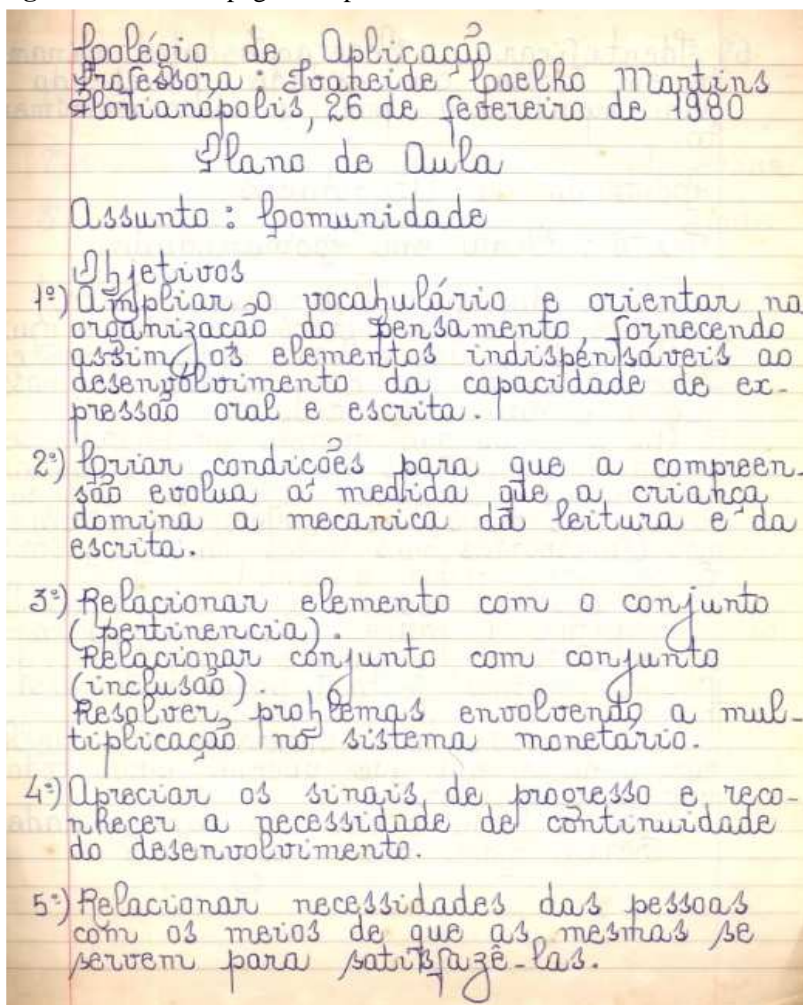 Colégio de Aplicação
Professora: Coelho Martins
Florianópolis, 26 de fevereiro de 1980
Plano de Aula
Assunto: Comunidade
Objetivos
1º) Ampliar o vocabulário e orientar na
organização do pensamento, fornecendo
assim, os elementos indispensáveis ao
desenvolvimento da capacidade de ex-
pressão oral e escrita.
2º) Criar condições para que a compreen-
são evolua á medida que a criança
domina a mecanica da leitura e da
escrita.
3º) Relacionar elemento com o conjunto
(pertinencia).
Relacionar conjunto com conjunto
(inclusão).
Resolver problemas envolvendo a mul-
tiplicação no sistema monetário.
4º) Apreciar os sinais de progresso e reco-
nhecer a necessidade de continuidade
do desenvolvimento.
5º) Relacionar necessidades das pessoas
com os meios de que as mesmas se
servem para satisfazê-las.